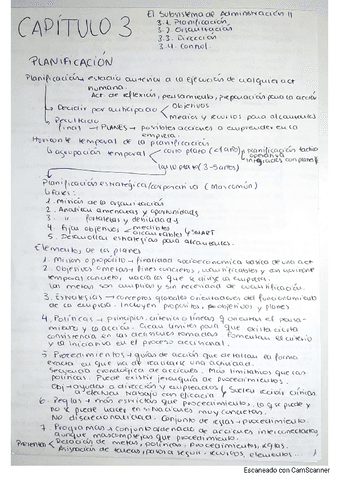 CAPÍTULO 3
El Subsistema de Administración II
3.1. Planificación
3.2. Organización
3.3. Dirección
3.4. Control
PLANIFICACIÓN
Planificación → estadio anterior a la ejecución de cualquier act
humana.
Act de reflexión, pensamiento, preparación para la acción
↳ Decidir por anticipado Objetivos
Medios y recursos para alcanzarlos
↳ Resultado
final → PLANES → posibles acciones a emprender en la
empresa.
Horizonte temporal de la planificación
↳ agrupación temporal corto plazo (≤1año) → planificación táctica
operativa
integradas con planif
largo plazo (3-5años)
Planificación estratégica/corporativa (Mas común)
↳ Fases:
1. Misión de la organización
2. Analizar amenazas y oportunidades
3. " fortalezas y debilidades
4. Fijar objetivos medibles
alcanzables SMART
5. Desarrollar estrategias para alcanzarlos.
Elementos de los planes
1. Misión o propósito → finalidad socioeconómica básica de una act
2. Objetivos o metas → fines concretos, cuantificables y en horizonte
temporal concreto, hacia los que se dirige la empresa.
Las metas son amplias y sin necesidad de cuantificación.
3. Estrategias → conceptos globales orientados del funcionamiento
de la empresa. Incluyen propósitos, objetivos y planes
4. Políticas → principios, criterios o líneas q orientan el pensa-
miento y la acción. Crean límites para que exista cierta
consistencia en las decisiones tomadas. Fomentan el criterio
y la iniciativa en el proceso decisional.
5. Procedimientos → guías de acción que detallan la forma
exacta en que va a realizarse una actividad.
Secuencia cronológica de acciones. Más limitativos que las
políticas. Puede existir jerarquía de procedimientos.
Obj → ayudan a dirección y empleados
a efectuar trabajo con eficacia
6. Reglas → más estrictas que procedimientos, lo q se puede y
no se puede hacer en situaciones muy concretas.
No discrecionalidad. Conjunto de reglas → procedimiento.
7. Programas → conjunto ordenado de acciones interconectadas,
aunque más complejas que procedimiento.
Relación de metas, políticas, procedimientos, reglas,
Asignación de tareas, pasos a seguir, recursos, elementos...
Escaneado con CamScanner